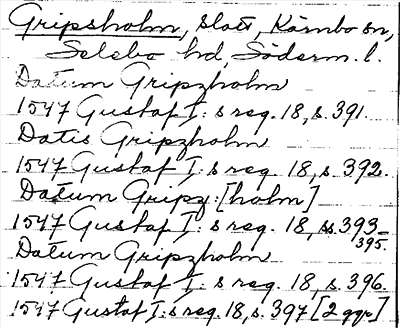 Gripsholm, slott, Kärnbo sn,
Selebo hd, Söderm. l.
Datum Gripzholm
1547 Gustaf I:s reg. 18, s. 391.
Datis Gripzholm
1547 Gustaf I:s reg. 18, s. 392.
Datum Gripz:[holm]
1547 Gustaf I:s reg. 18, ss. 393-
395.
Datum Gripzholm
1547 Gustaf I:s reg. 18, s. 396.
1547 Gustaf I:s reg. 18, s. 397 [2 ggr]